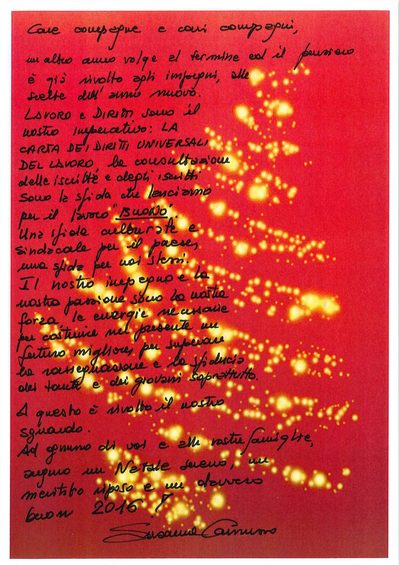 Care compagne e cari compagni,
un altro anno volge al termine ed il pensiero
è già rivolto agli impegni, alle
scelte dell'anno nuovo.
LAVORO e DIRITTI sono il
nostro imperativo: LA
CARTA DEI DIRITTI UNIVERSALI
DEL LAVORO la consultazione
delle iscritte e degli iscritti
sono la sfida che lanciamo
per il lavoro "BUONO"
Una sfida culturale e
sindacale per il paese,
una sfida per noi stessi.
Il nostro impegno e la
nostra passione sono la nostra
forza le energie necessarie
per costruire nel presente un
futuro migliore, per superare
la rassegnazione e la sfiducia
dei tanti e dei giovani soprattutto.
A questo è rivolto il nostro
sguardo.
Ad ognuno di voi e alle vostre famiglie,
auguro un Natale sereno, un
meritato riposo e un davvero
buon 2016!
Susanna Camusso